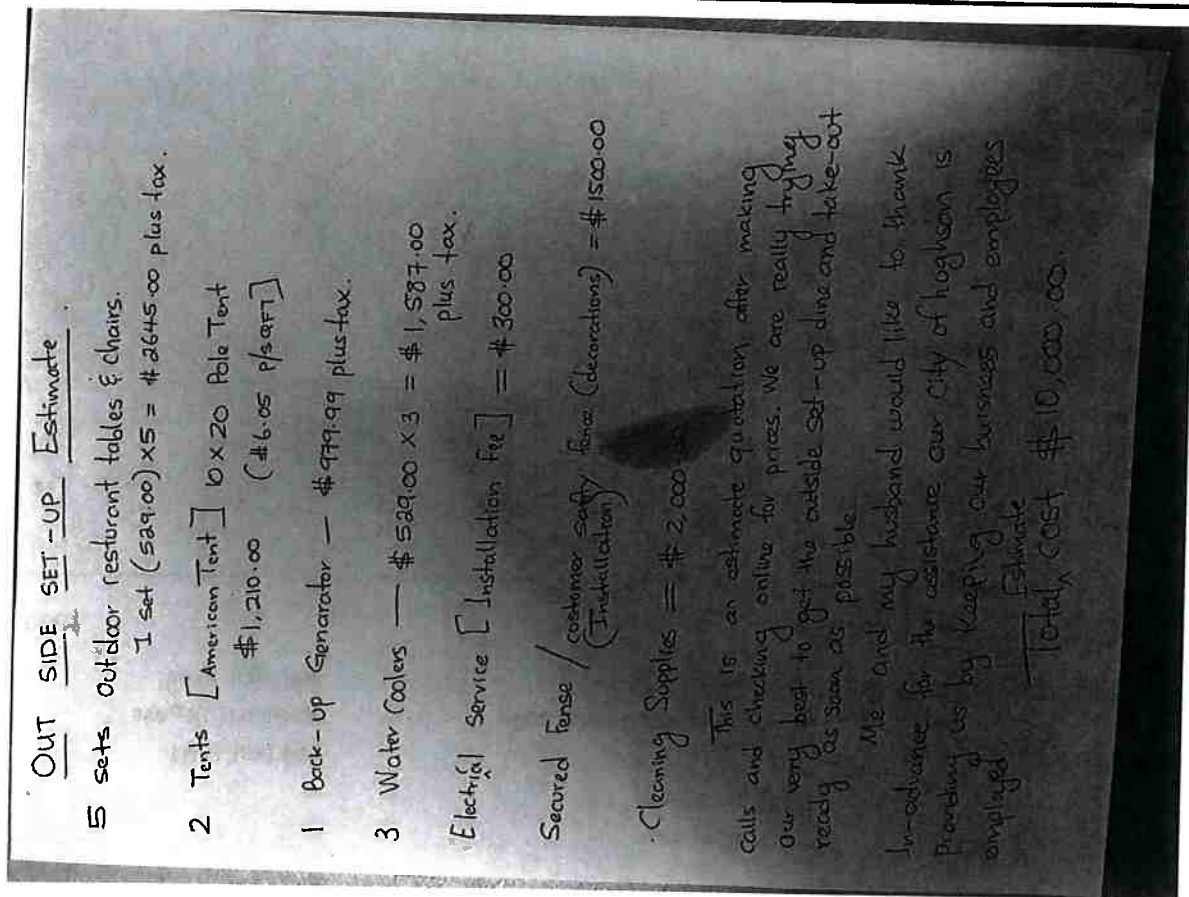 OUT SIDE SET-UP Estimate.
5 sets outdoor resturant tables & chairs.
1 set (529.00) x5 = $2645.00 plus tax.
2 Tents [American Tent] 10 x 20 Pole Tent
$1,210.00 ($6.05 P/SQFT)
1 Back-up Genarator — $979.99 plus tax.
3 Water Coolers — $529.00 x 3 = $1,587.00
plus tax.
Electrial Service [Installation Fee] = $300.00
Secured Fense / costomer safty fence (decorations) = $1500.00
(Installation)
Cleaning Supplies = $2,000
This is an estimate quotation after making
calls and checking online for prices. We are really trying
our very best to get the outside set-up dine and take-out
ready as soon as possible
Me and my husband would like to thank
In-advance for the assistance our City of hughson is
providing us by keeping our buisness and employees
employed.
Total Estimate Cost $10,000.00.